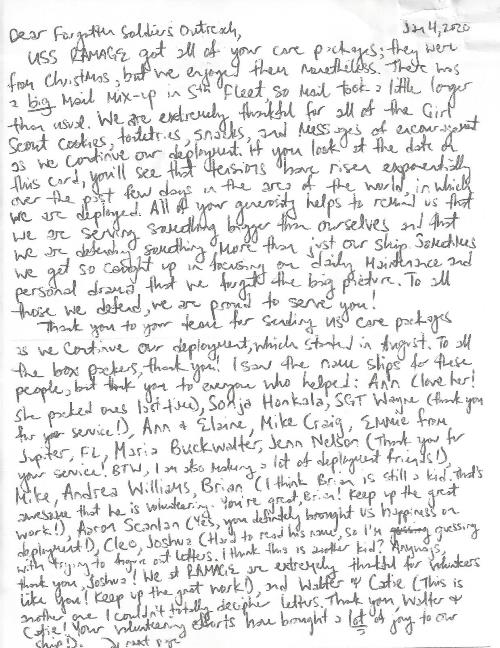 Dear Forgotten Soldiers Outreach, Jan 4, 2020
USS RAMAGE got all of your care packages; they were
from Christmas, but we enjoyed them nonetheless. There was
a big Mail Mix-up in 5th Fleet so Mail took a little longer
than usual. We are extremely thankful for all of the Girl
Scout cookies, toiletries, snacks, and Messages of encouragement
as we continue our deployment. If you look at the date on
this card, you'll see that tensions have risen exponentially
over the past few days in the area of the world, in which
we are deployed. All of your generosity helps to remind us that
we are serving something bigger than ourselves and that
we are defending something More than just our ship. Sometimes
we get so caught up in focusing on daily Maintenance and
personal drama that we forget the big picture. To all
those we defend, we are proud to serve you!
Thank you to your team for sending us care packages
as we continue our deployment, which started in August. To all
the box packers, thank you! I saw the name slips for these
people, but thank you to everyone who helped: Ann (love her!
She packed ones last time), Sonja Honkala, SGT Wayne (thank you
for your service!), Ann & Elaine, Mike Craig, Emmie from
Jupiter, FL, Maria Buckwalter, Jenn Nelson (Thank you for
your service! BTW, I am also making a lot of deployment friends!),
Mike, Andrea Williams, Brian (I think Brian is still a kid. That's
awesome that he is volunteering. You're great, Brian! Keep up the great
work!), Aaron Scanlan (Yes, you definitely brought us happiness on
deployment!), Cleo, Joshua (Hard to read his name, so I'm guessing
with trying to figure out letters. I think this is another kid? Anyways,
thank you, Joshua! We at RAMAGE are extremely thankful for volunteers
like you! Keep up the great work!), and Walter & Catie (This is
another one I couldn't totally decipher letters. Thank you, Walter &
Catie! Your volunteering efforts have brought a lot of joy to our
ship!). next page